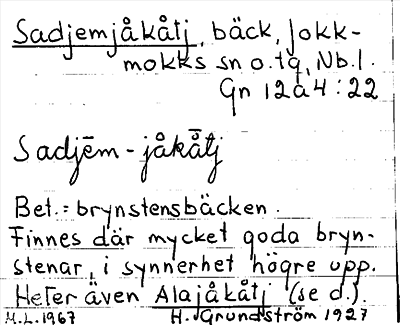 Sadjemjåkåtj, bäck, Jokk-
mokks sn o. tg, Nb. l.
Gn 12a4:22
Sadjēm-jåkå̄tj
Bet.: brynstensbäcken.
Finnes där mycket goda bryn-
stenar, i synnerhet högre upp.
Heter även Alajåkåtj (se d.).
M.L. 1967 H. Grundström 1927